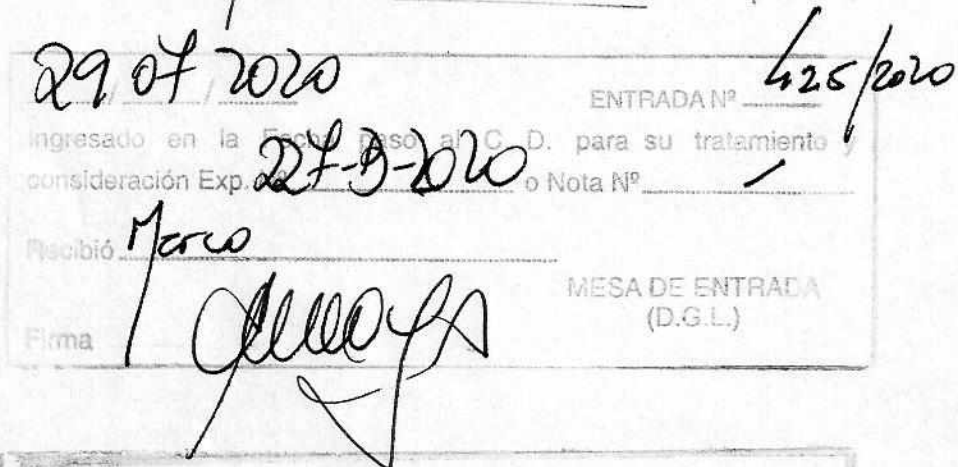 29/07/2020
ENTRADA Nº 425/2020
Ingresado en la Fecha pasó al C. D. para su tratamiento y
consideración Exp. 227-B-2020 o Nota Nº /
Recibió Marco
MESA DE ENTRADA
(D.G.L.)
Firma